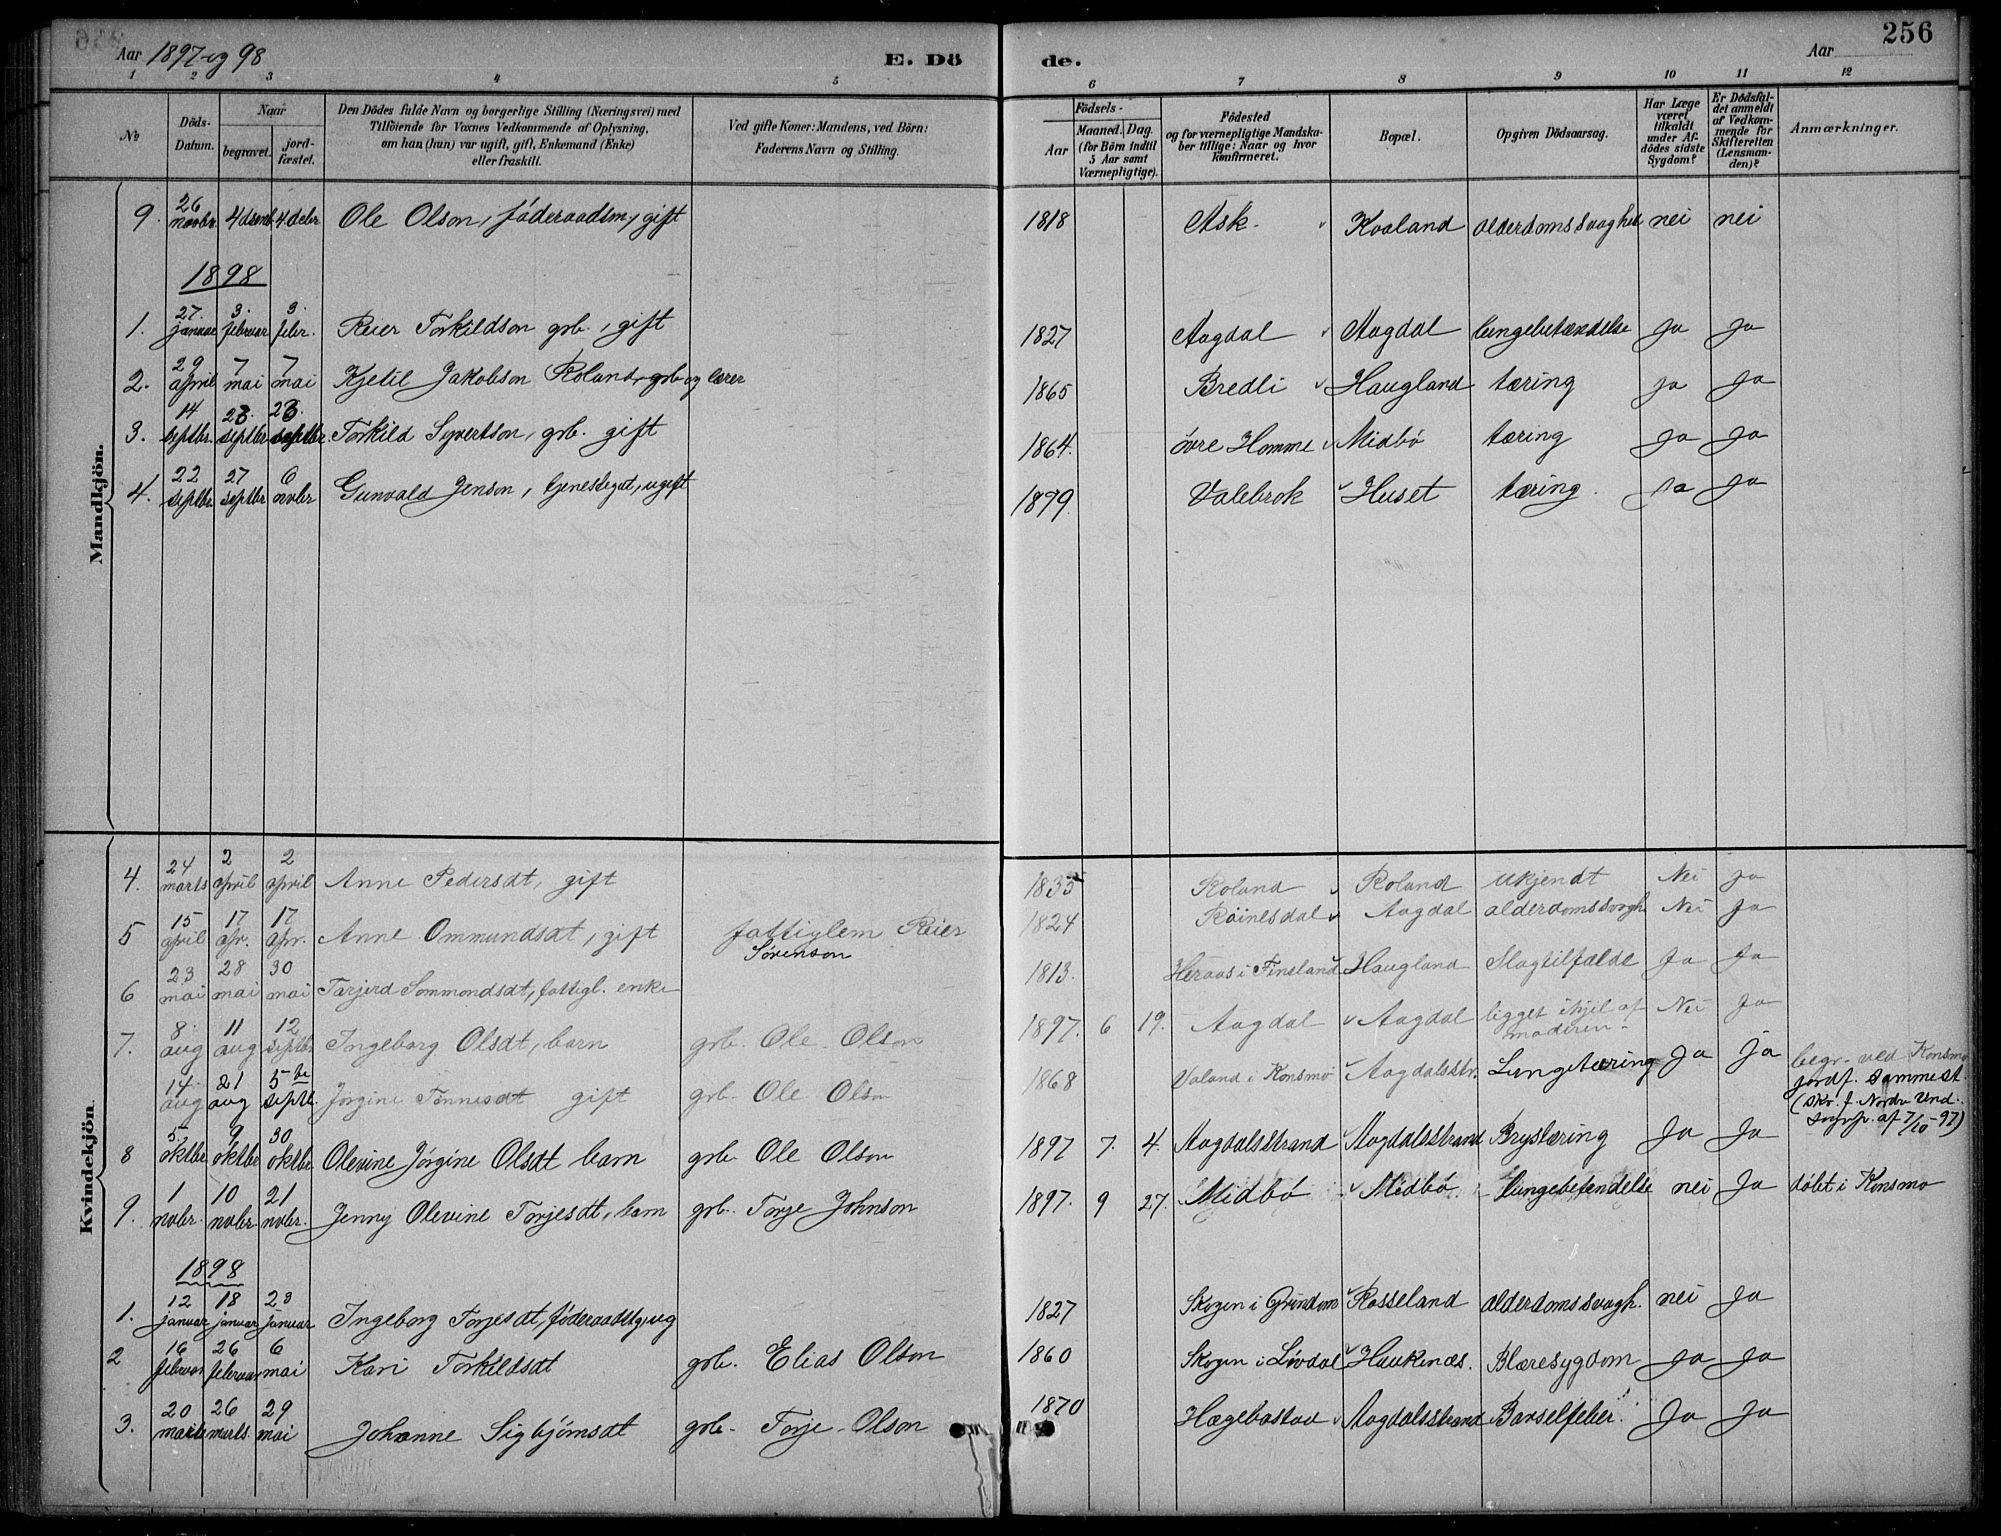 Aar 1897 og 98 E. Dö de. Aar 256
1 2 3 4 5 6 7 8 9 10 11 12
No
Döds-Datum.
Naar
begravet.
jord-fæstet.
Den Dödes fulde Navn og borgerlige Stilling (Næringsvei) med
Tilföiende for Voxnes Vedkommende af Oplysning,
om han (hun) var ugift, gift, Enkemand (Enke)
eller fraskilt.
Ved gifte Koner: Mandens, ved Börn:
Faderens Navn og Stilling.
Födsels-
Aar
Maaned. Dag.
(for Börn indtil
5 Aar samt
Værnepligtige).
Födested
og for værnepligtige Mandska-
ber tillige: Naar og hvor
konfirmeret.
Bopæl.
Opgiven Dödsaarsag.
Har Læge
været
tilkaldt
under Af-
dödes sidste
Sygdom?
Er Dödsfal-
det anmeldt
af Vedkom-
mende for
Skifteretten
(Lensman-
den)?
Anmærkninger.
Mandkjön.
9. 26 novbr. 4 desmb 4. debr Ole Olson, föderaadsm, gift 1818 Ask Kvaland alderdomssvaghed nei nei
1898
1. 27. januar 3. februar 3. febr. Reier Torkildson grb., gift 1827 Aagdal Aagdal lungebetændelse Ja Ja
2. 29 april 7 mai 7 mai Kjetil Jakobson Roland, grb og lærer 1865 Bredli Haugland tæring ja Ja
3. 14 septbr. 23. septbr 23. septbr. Torkild Syvertson, grb. gift 1864. övre Homme Midbö tæring Ja Ja
4. 22 septbr. 27 septbr 6 novbr Gunvald Jenson, tjenestegut, ugift 1879. Valebrok Huset tæring. Ja Ja
Kvindekjön.
4. 24 marts 2 april 2 april Anne Pedersdt, gift 1835 Roland Roland ukjendt Nei ja
5 15 april 17 apr. 17 apr. Anne Ommundsdt, gift fattiglem Reier Sörenson 1824 Röinesdal Aagdal alderdomssvagh. Nei Ja
6 23 mai 28 mai 30 mai Tarjerd Sommondsdt, fattigl. enke 1813. Heraas i Finsland Haugland Slagtilfælde Ja Ja
7. 8 aug 11 aug 12 septbr Ingeborg Olsdt, barn grb. Ole Olson 1897. 6 19. Aagdal Aagdal ligget ihjel af moderen. Nei Ja
14 aug 21 aug 5te septb. Jörgine Tönnesdt gift grb. Ole Olson 1868 Valand i Konsmo Aagdalsstr. Lungetæring Ja ja begr. ved Konsmo
jordf. sammest.
(skr. f. Nordre Und.
Sogn. af 7/10-97)
8 5. oktbr 9 oktbr 30 oktbr Olevine Jörgine Olsdt barn grb. Ole Olson 1897 7. 4. Aagdalsstrand Aagdalsstrand Brystæring Ja Ja
9. 1 novbr. 10 novbr 21 novbr. Jenny Olevine Torjesdt, barn grb. Torje Johnson 1897. 9 27. Midbö Midbö Lungebetendelse nei Ja döbt i Konsmo
1898
1. 12 januar 18 januar 23 januar Ingeborg Torjesdt, föderaadstg, ug 1827 Skogen i Grindem Rosseland alderdomssvagh. nei Ja
2 16 februar 26 februar 6 mai Kari Torkildsdt grb. Elias Olson 1860 Skogen i Lövdal Haukenæs. Blæresygdom Ja Ja
3. 20 marts 26 marts 29 mai Johanne Sigbjörnsdt grb. Torje Olson 1870 Hægebostad Aagdalsstrand Barselfeber. Ja Ja